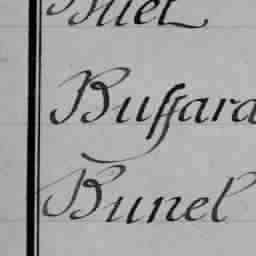 Buffard
Bunel